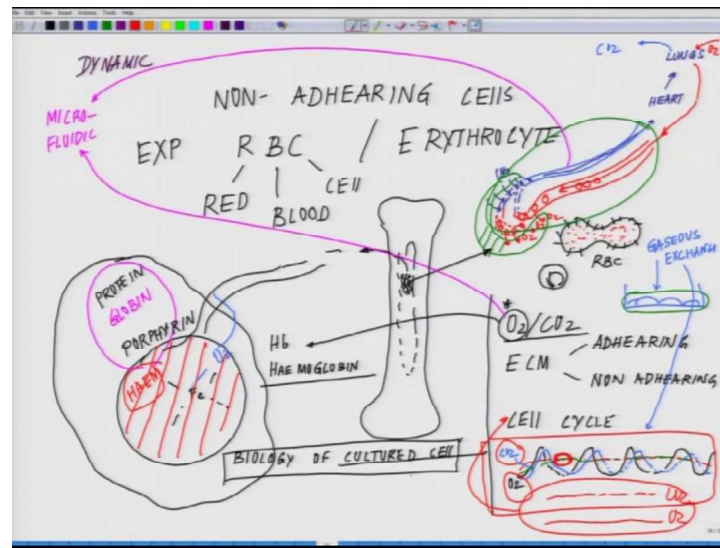 DYNAMIC
MICRO-
FLUIDIC
NON-ADHEARING CELLS
EXP RBC / ERYTHROCYTE
RED
BLOOD
CELL
CO2
LUNGS O2
HEART
CO2
O2
O2
RBC
GASEOUS
EXCHANGE
PROTEIN
GLOBIN
PORPHYRIN
O2
HAEM
Fe
Hb
HAEMOGLOBIN
O2/CO2
ECM
ADHEARING
NON ADHEARING
CELL CYCLE
BIOLOGY OF CULTURED CELL
CO2
O2
CO2
O2